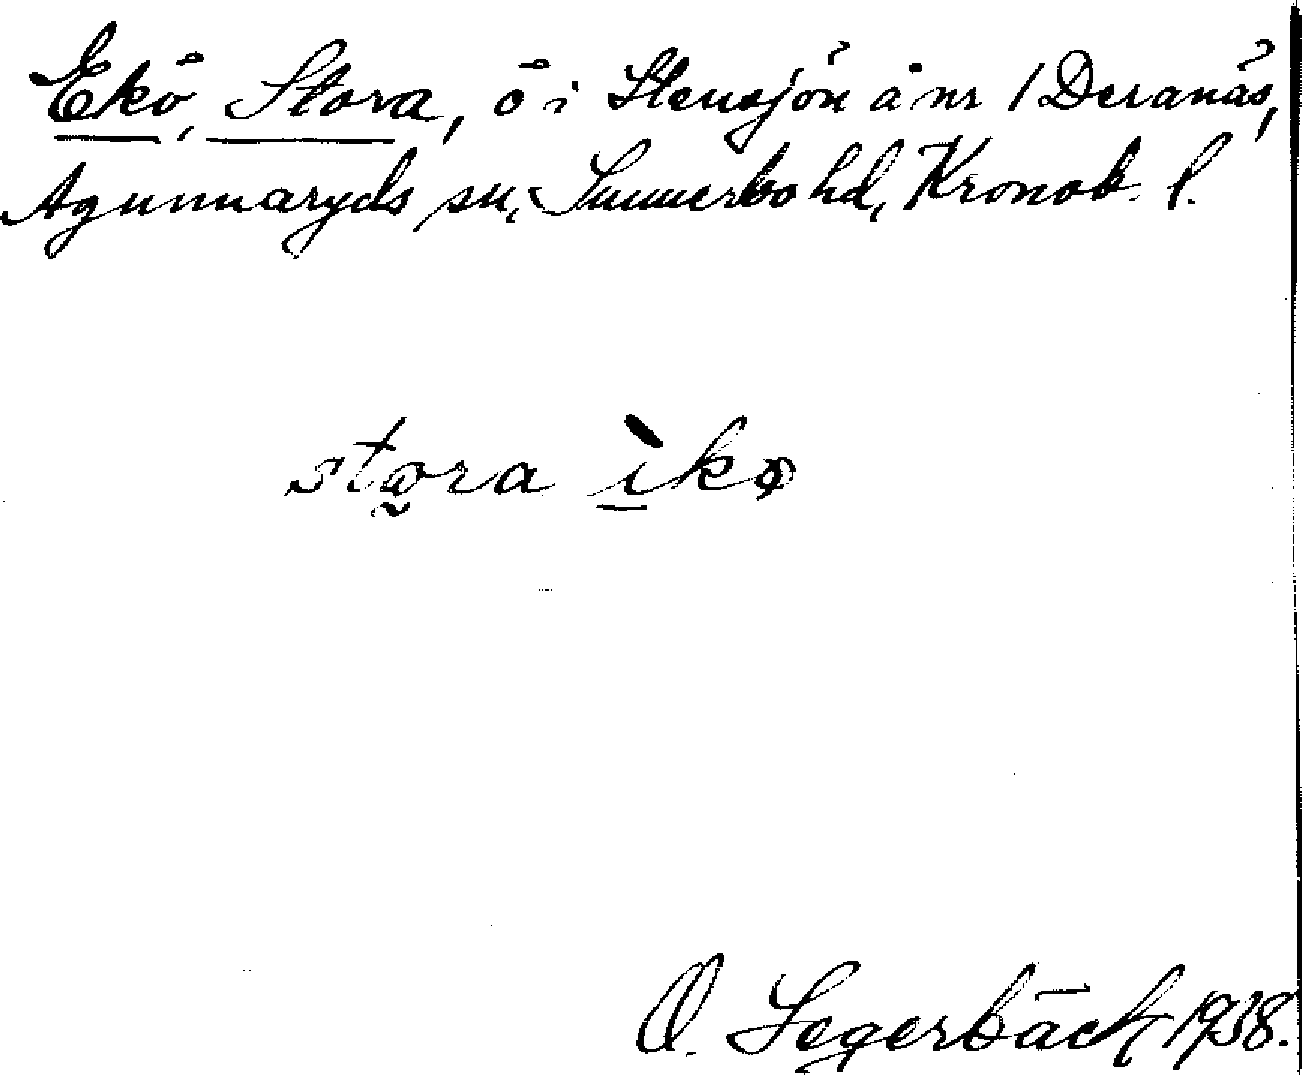 Ekö, Stora, ö i Stensjön å nr 1 Deranäs,
Agunnaryds sn, Sunnerbo hd, Kronob. l.
stora ìkø
O. Segerbäck 1938.